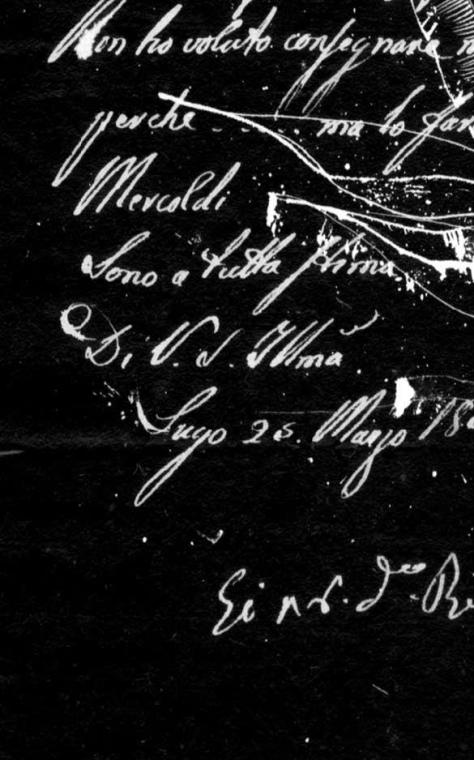 Non ho voluto consegnare
perche ...... ma lo far
Mercoldi
Sono a tutta stima
Di V. S. Illma
Lugo 25. Marzo 18